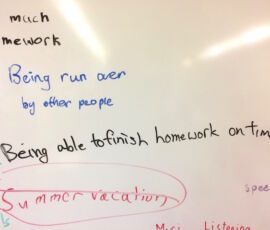 much
mework
Being run over
by other people
Being able to finish homework on tim
Summer vacation
spee
Listening